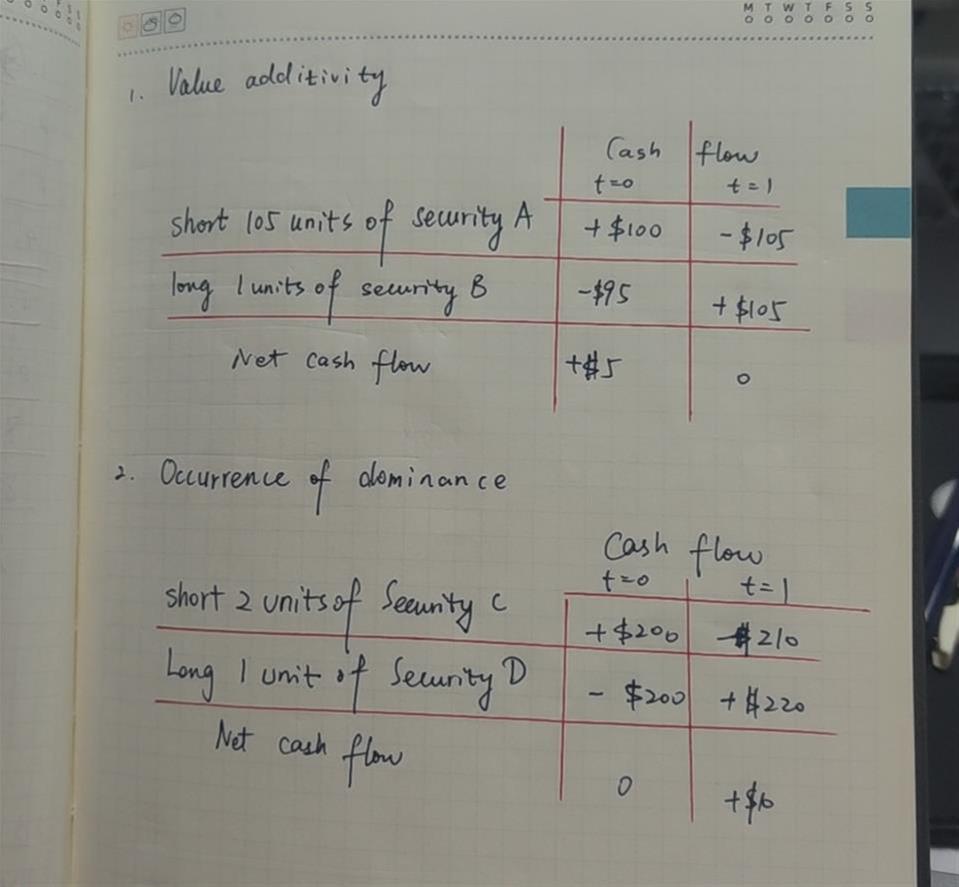 M T W T F S S
1. Value additivity
Cash flow
t=0 t=1
short 105 units of security A +$100 -$105
long 1 units of security B -$95 +$105
Net cash flow +$5 0
2. Occurrence of dominance
Cash flow
t=0 t=1
short 2 units of Security C +$200 -$210
Long 1 unit of Security D - $200 +$220
Net cash flow 0 +$10